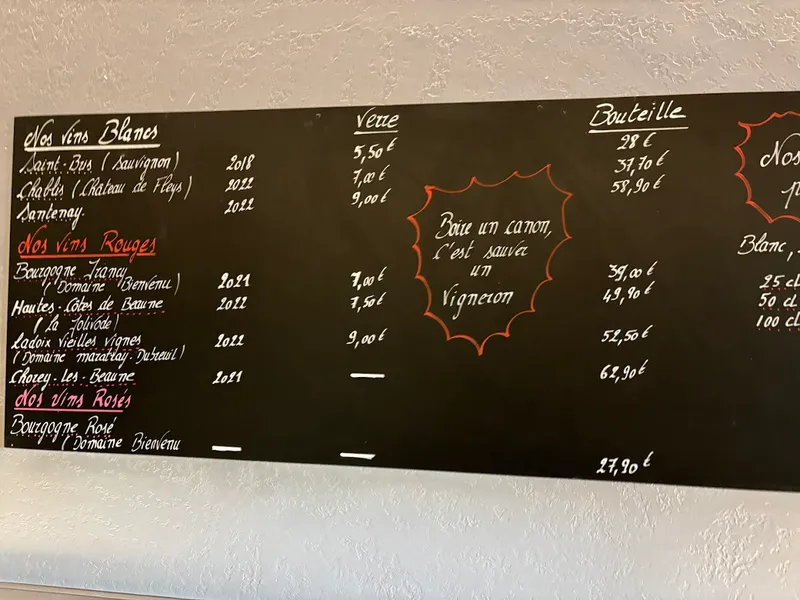 Nos vins Blancs Verre Bouteille
Saint-Bris (Sauvignon) 2018 5,50€ 28€
Chablis (Château de Fleys) 2022 7,00€ 37,70€
Santenay. 2022 9,00€ 58,90€
Nos vins Rouges
Bourgogne Irancy
(Domaine Bienvenu) 2021 7,00€ 39,00€
Hautes-Côtes de Beaune 2022 7,50€ 49,90€
(La Jolivode)
Ladoix vieilles vignes 2022 9,00€ 52,50€
(Domaine maratray-Dubreuil)
Chorey-les-Beaune 2021 — 62,90€
Nos vins Rosés
Bourgogne Rosé
(Domaine Bienvenu — — 27,90€
Boire un canon,
c'est sauver
un
Vigneron
Nos
p
Blanc,
25 cl
50 cl
100 cl